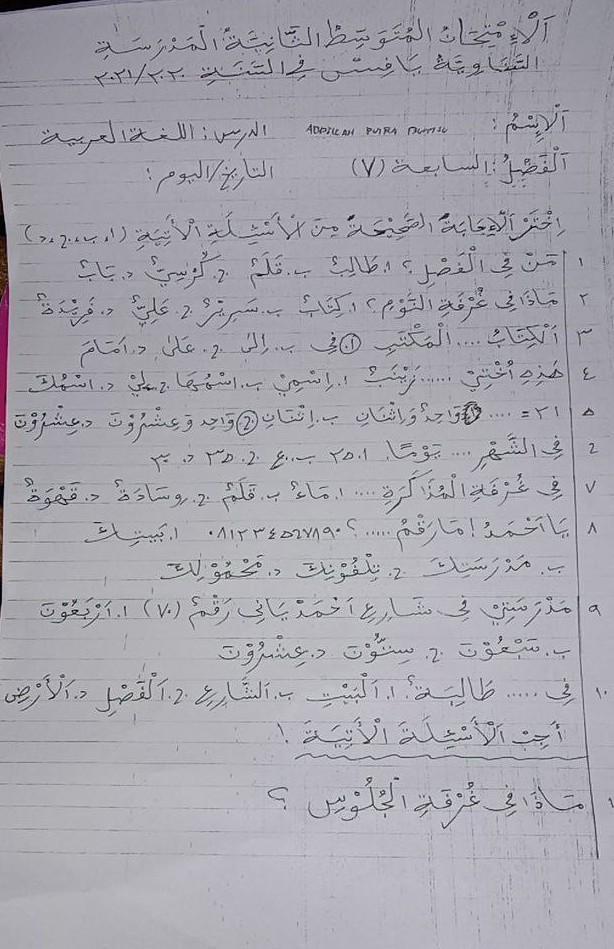 اَلْاِمْتِحَانُ الْمُتَوَسِّطُ الثَّانِيَةُ الْمَدْرَسَةِ
الثَّنَاوِيَّةُ بَافِسْ فِي السَّنَةِ ٢٠٢١/٢٠٢٠
اَلْاِسْمُ : ADDILLAH PUTRA الدرس : اللغة العربية
اَلْفَصْلُ : السابعة (٧) التاريخ/اليوم :
اِخْتَرْ اَلْاِجَابَةَ الصَّحِيْحَةَ مِنَ الْأَسْئِلَةِ الْأَتِيَةِ (ا، ب، ج، د)
١ مَنْ فِى الْفَصْلِ ؟ ا. طَالِبٌ ب. قَلَمٌ ج. كُرْسِيٌّ د. بَابٌ
٢ مَاذَا فِى غُرْفَةِ النَّوْمِ ؟ ا. كِتَابٌ ب. سَرِيْرٌ ج. عَلِيٌّ د. فَرِيْدَةٌ
٣ اَلْكِتَابُ .... الْمَكْتَبِ ا. فِى ب. اِلىَ ج. عَلىَ د. اَمَامَ
٤ هَذِهِ اُخْتِيْ ..... زَيْنَبُ ا. اِسْمِيْ ب. اسْمُهَا ج. لِيْ د. اسْمُكَ
٥ ٢١ = .... ا. وَاحِدٌ وَاِثْنَانِ ب. اِثْنَانِ ج. وَاحِد وَعِشْرُوْنَ د. عِشْرُوْنَ
٦ فِى الشَّهْرِ .... يَوْمًا. ا. ٢٥ ب. ٤٠ ج. ٣٥ د. ٣٠
٧ فِى غُرْفَةِ الْمُذَاكَرَةِ .... ا. مَاءٌ ب. قَلَمٌ ج. وِسَادَةٌ د. قَهْوَةٌ
٨ يَا اَحْمَدُ ! مَا رَقْمُ ..... ؟ ٠٨١٢٣٤٥٦٧٨٩٠ ا. بَيْتِكَ
ب. مَدْرَسَتِكَ ج. تِلْفُوْنِكَ د. مَحْمُوْلِكَ
٩ مَدْرَسَتِيْ فِى شَارِعِ اَحْمَدْ يَانِى رَقْمُ (٧٠) ا. اَرْبَعُوْنَ
ب. سَبْعُوْنَ ج. سِتُّوْنَ د. عِشْرُوْنَ
١٠ فِى ..... طَالِبَةٌ. ا. الْبَيْتِ ب. الشَّارِعِ ج. الْفَصْلِ د. الْأَرْضِ
أَجِبْ اَلْأَسْئِلَةَ الْأَتِيَةَ !
١ مَاذَا فِى غُرْفَةِ الْجُلُوْسِ ؟